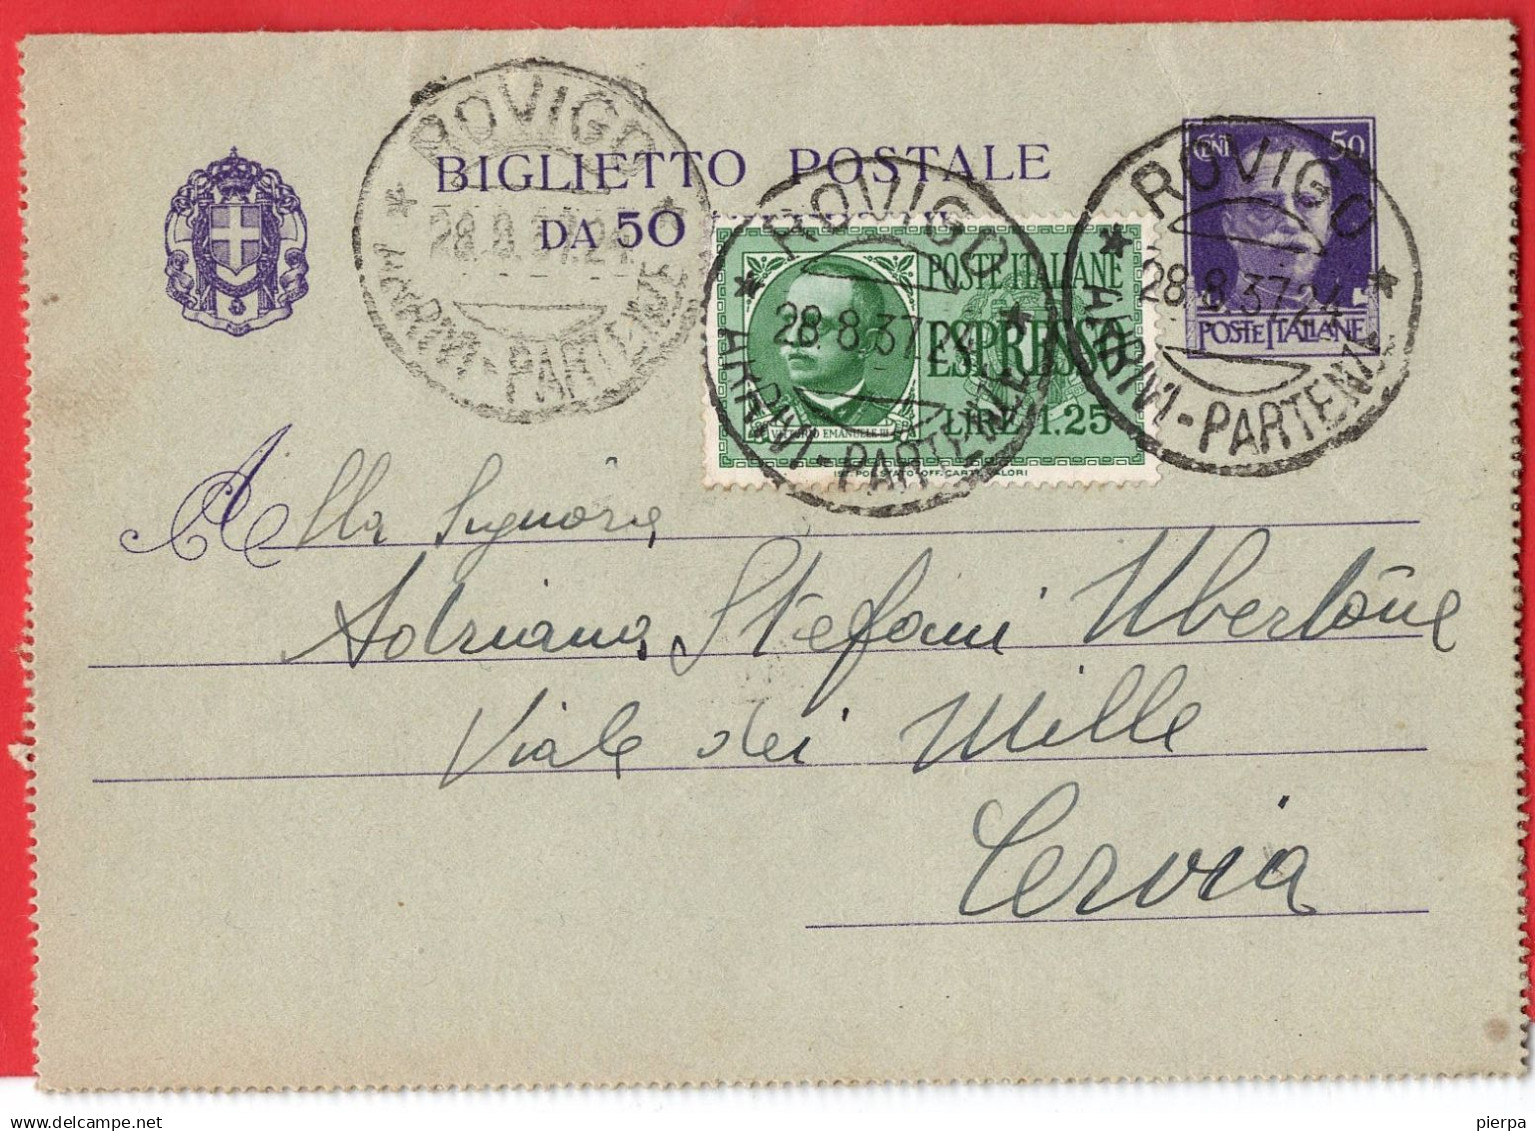 BIGLIETTO POSTALE
DA 50
CENT 50
POSTE ITALIANE
ROVIGO
28.8.37.24
ARRIVI - PARTENZE
ROVIGO
28.8.37.24
ARRIVI - PARTENZE
ROVIGO
28.8.37.24
ARRIVI - PARTENZE
POSTE ITALIANE
ESPRESSO
LIRE 1.25
VITTORIO EMANUELE III
IST. POL. STATO OFF. CARTE VALORI
Alla Signora
Adriana Stefani Ubertone
Viale dei Mille
Cervia
www.delcampe.net
pierpa